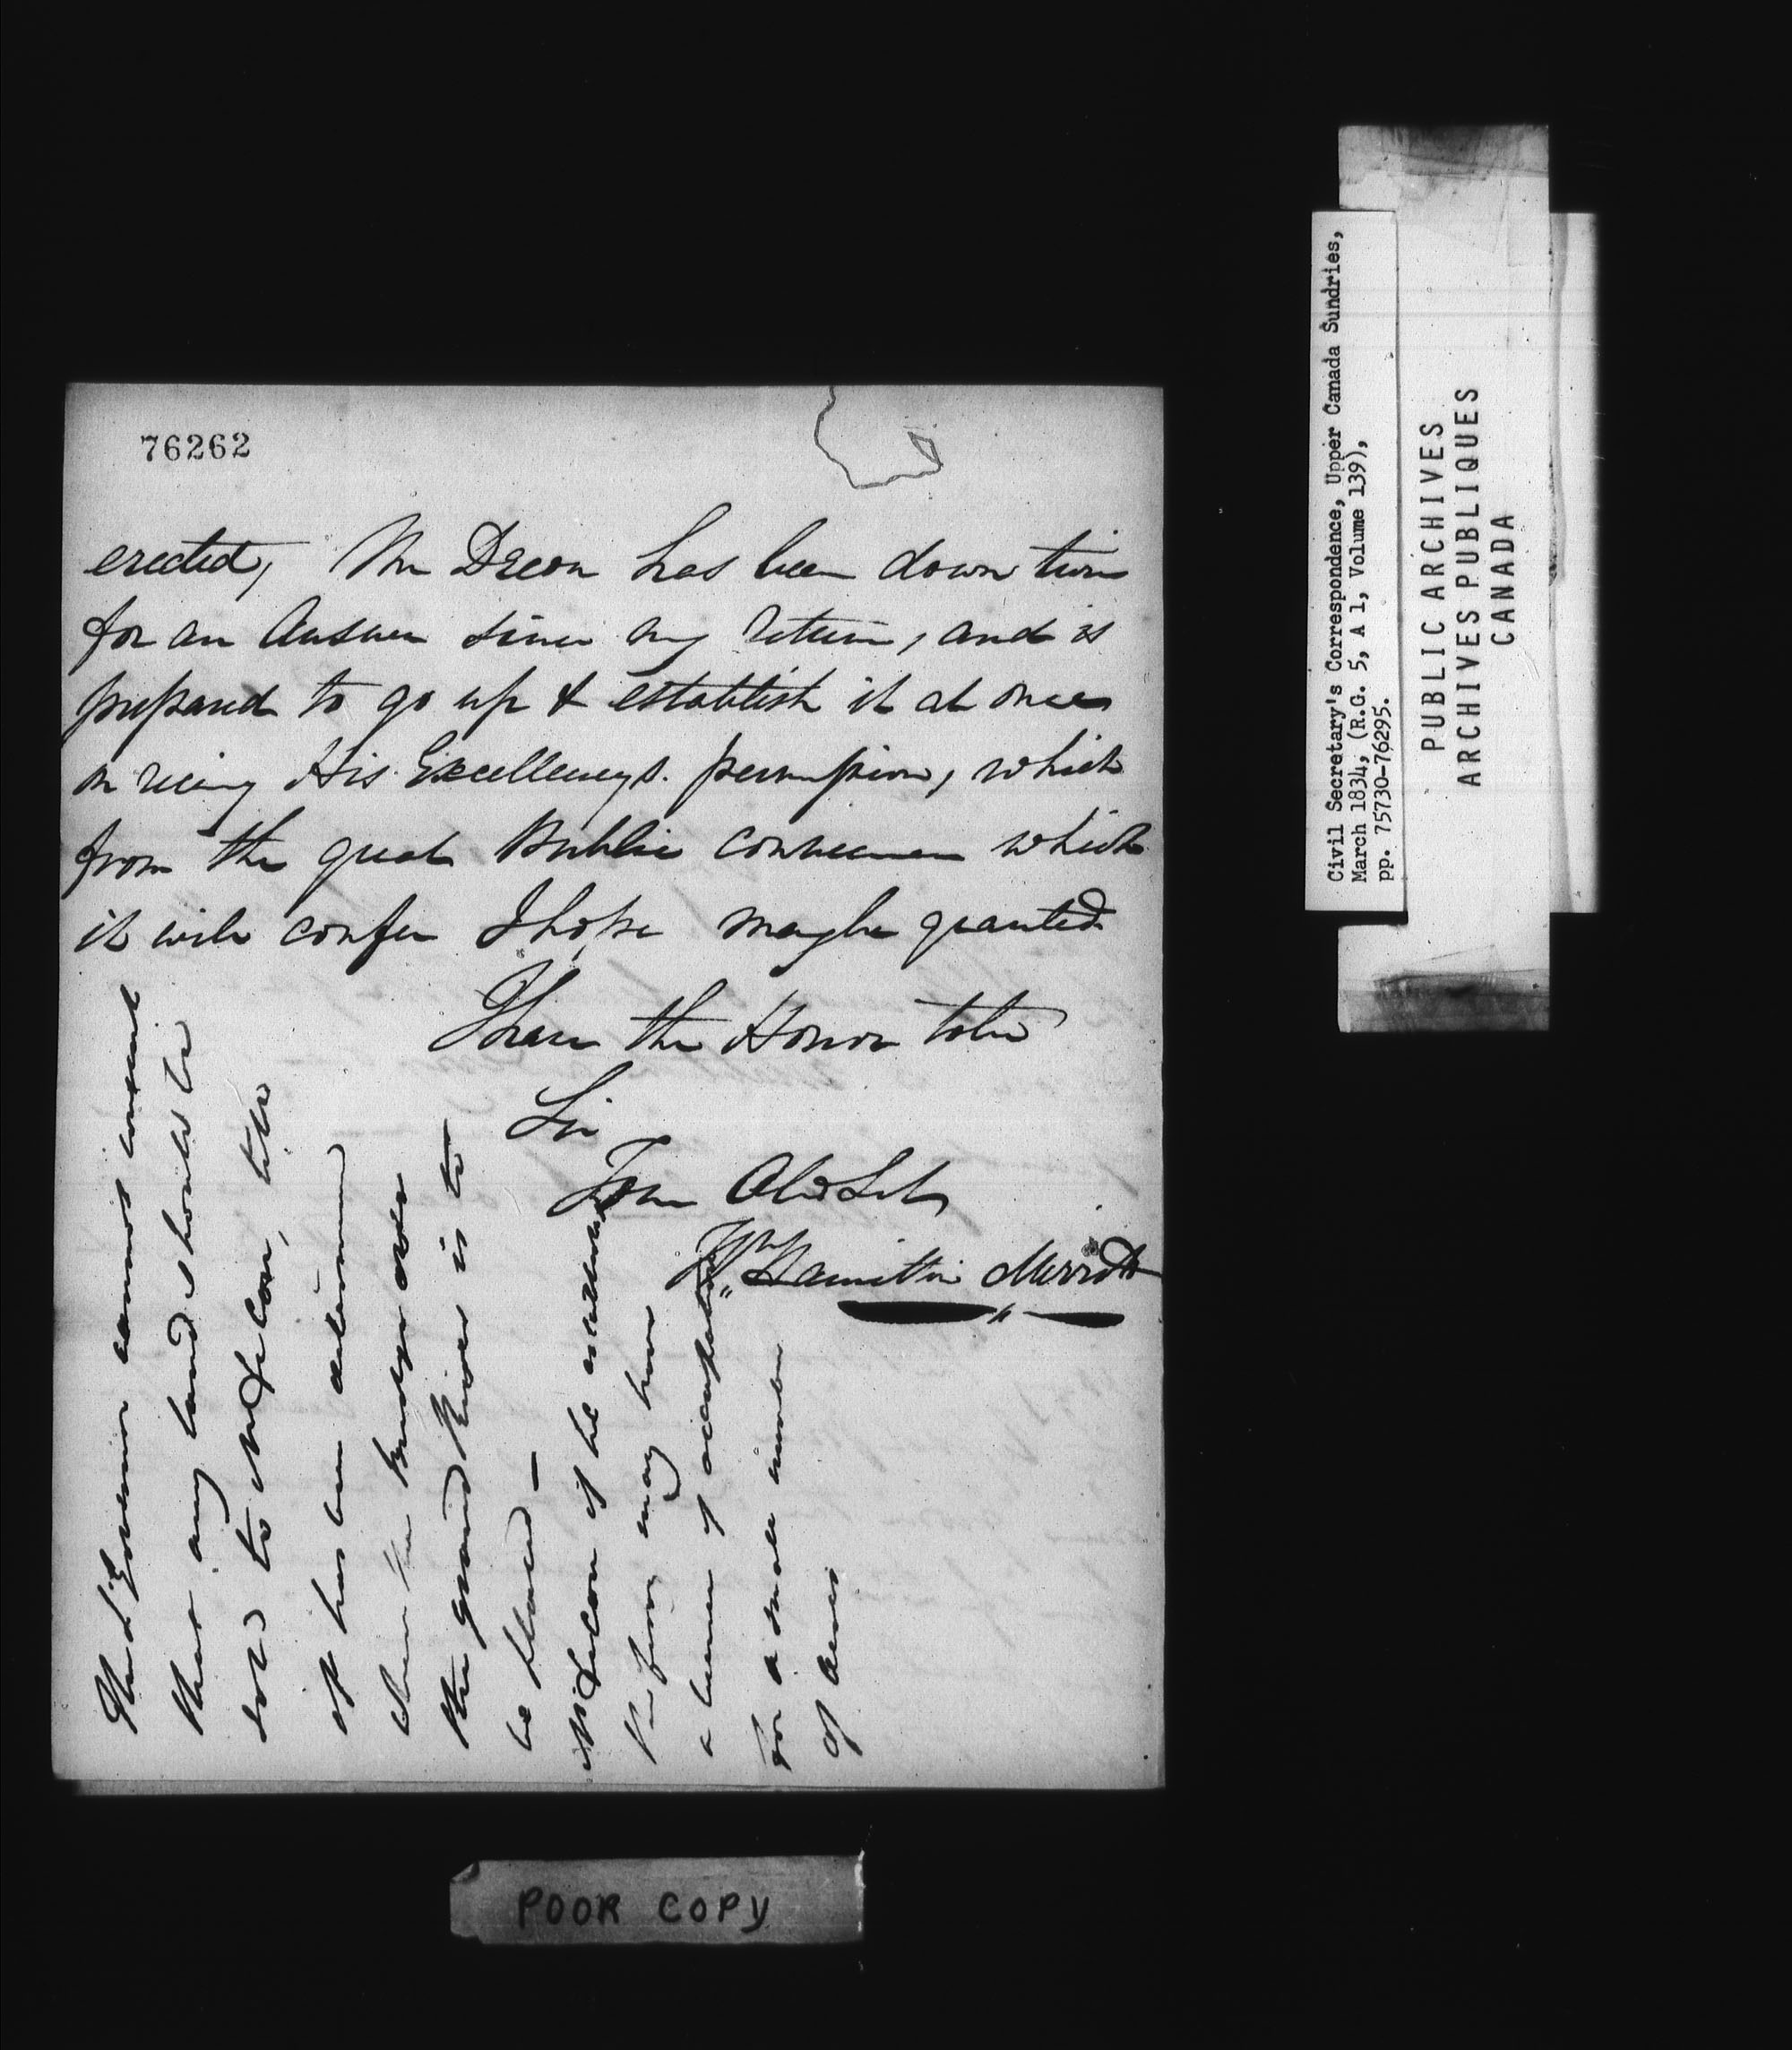 76262
erected, Mr Decou has been down twice
for an Answer since my return, and is
prepared to go up & establish it at once
on recing His Excellencys. permission, which
from the great Public convenience which
it will confer I hope maybe granted
I have the Honor tobe
Sir
Your Obd Sert
Wm Hamilton Merritt
The Lt Governor cannot consent
that any land should be
sold to Mr Decou, till
it has been determined
where the Bridge over
the grand River is to
be placed —
Mr Decou if he establishes
the ferry may have
a license of occupation
for a small number
of Acres
Civil Secretary's Correspondence, Upper Canada Sundries,
March 1834, (R.G. 5, A 1, Volume 139),
pp. 75730-76295.
PUBLIC ARCHIVES
ARCHIVES PUBLIQUES
CANADA
POOR COPY